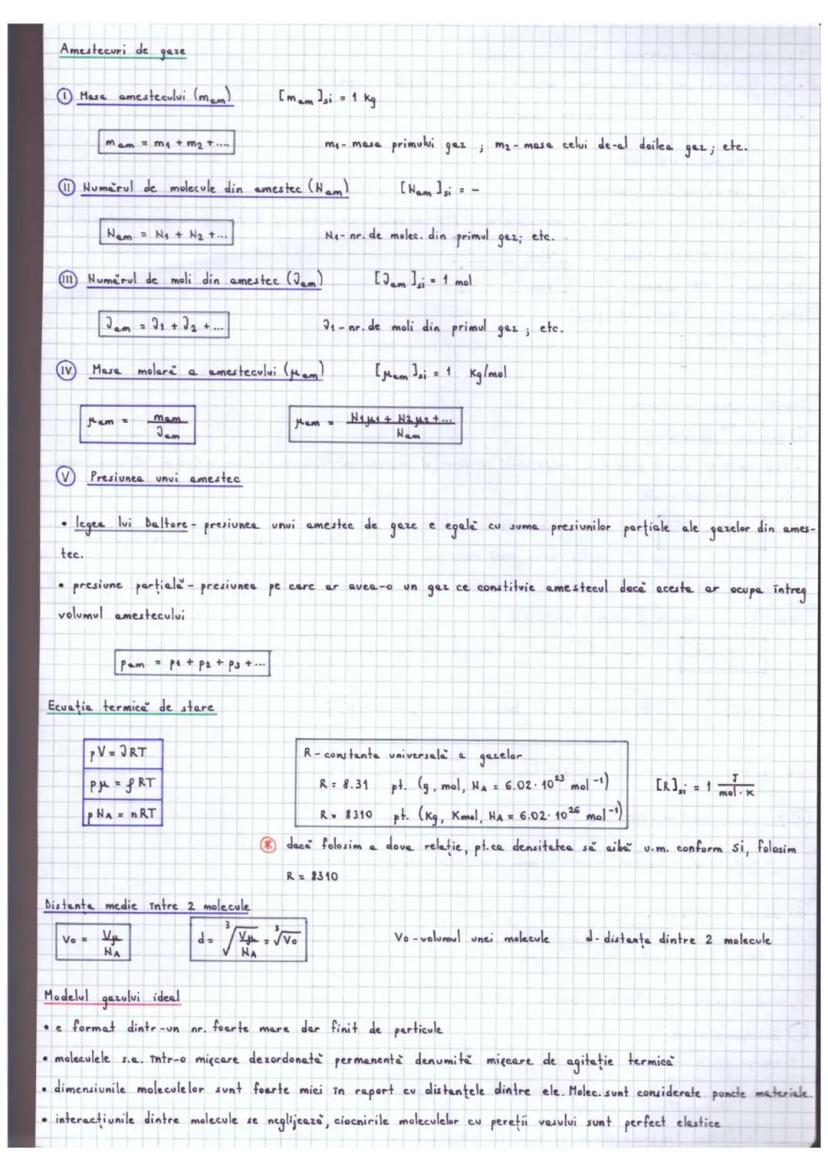 Amestecuri de gaze
I Masa amestecului (mam) [mam]si = 1 Kg
mam = m1 + m2 + .... m1 - masa primului gaz ; m2 - masa celui de-al doilea gaz; etc.
II Numărul de molecule din amestec (Nam) [Nam]si = -
Nam = N1 + N2 + ... N1 - nr. de molec. din primul gaz; etc.
III Numărul de moli din amestec (νam) [νam]si = 1 mol
νam = ν1 + ν2 + ... ν1 - nr. de moli din primul gaz ; etc.
IV Masa molară a amestecului (μam) [μam]si = 1 Kg/mol
μam = mam / νam μam = N1μ1 + N2μ2 + ... / Nam
V Presiunea unui amestec
• legea lui Daltore - presiunea unui amestec de gaze e egală cu suma presiunilor parțiale ale gazelor din ames-
tec.
• presiune parțială - presiunea pe care ar avea-o un gaz ce constituie amestecul dacă acesta ar ocupa întreg
volumul amestecului
pam = p1 + p2 + p3 + ...
Ecuația termică de stare
pV = νRT R - constanta universală a gazelor
pμ = ρRT R = 8.31 pt. (g, mol, NA = 6.02 · 10²³ mol⁻¹) [R]si = 1 J / mol · K
pNA = nRT R = 8310 pt. (Kg, Kmol, NA = 6.02 · 10²⁶ mol⁻¹)
* dacă folosim a doua relație, pt.ca densitatea să aibă u.m. conform Si, folosim
R = 8310
Distanta medie între 2 molecule
V0 = Vμ / NA d = ∛(Vμ / NA) = ∛V0 V0 - volumul unei molecule d - distanța dintre 2 molecule
Modelul gazului ideal
• e format dintr-un nr. foarte mare dar finit de particule
• moleculele s.a. într-o mișcare dezordonată permanentă denumită mișcare de agitație termică
• dimensiunile moleculelor sunt foarte mici în raport cu distanțele dintre ele. Molec. sunt considerate puncte materiale.
• interacțiunile dintre molecule se neglijează, ciocnirile moleculelor cu pereții vasului sunt perfect elastice